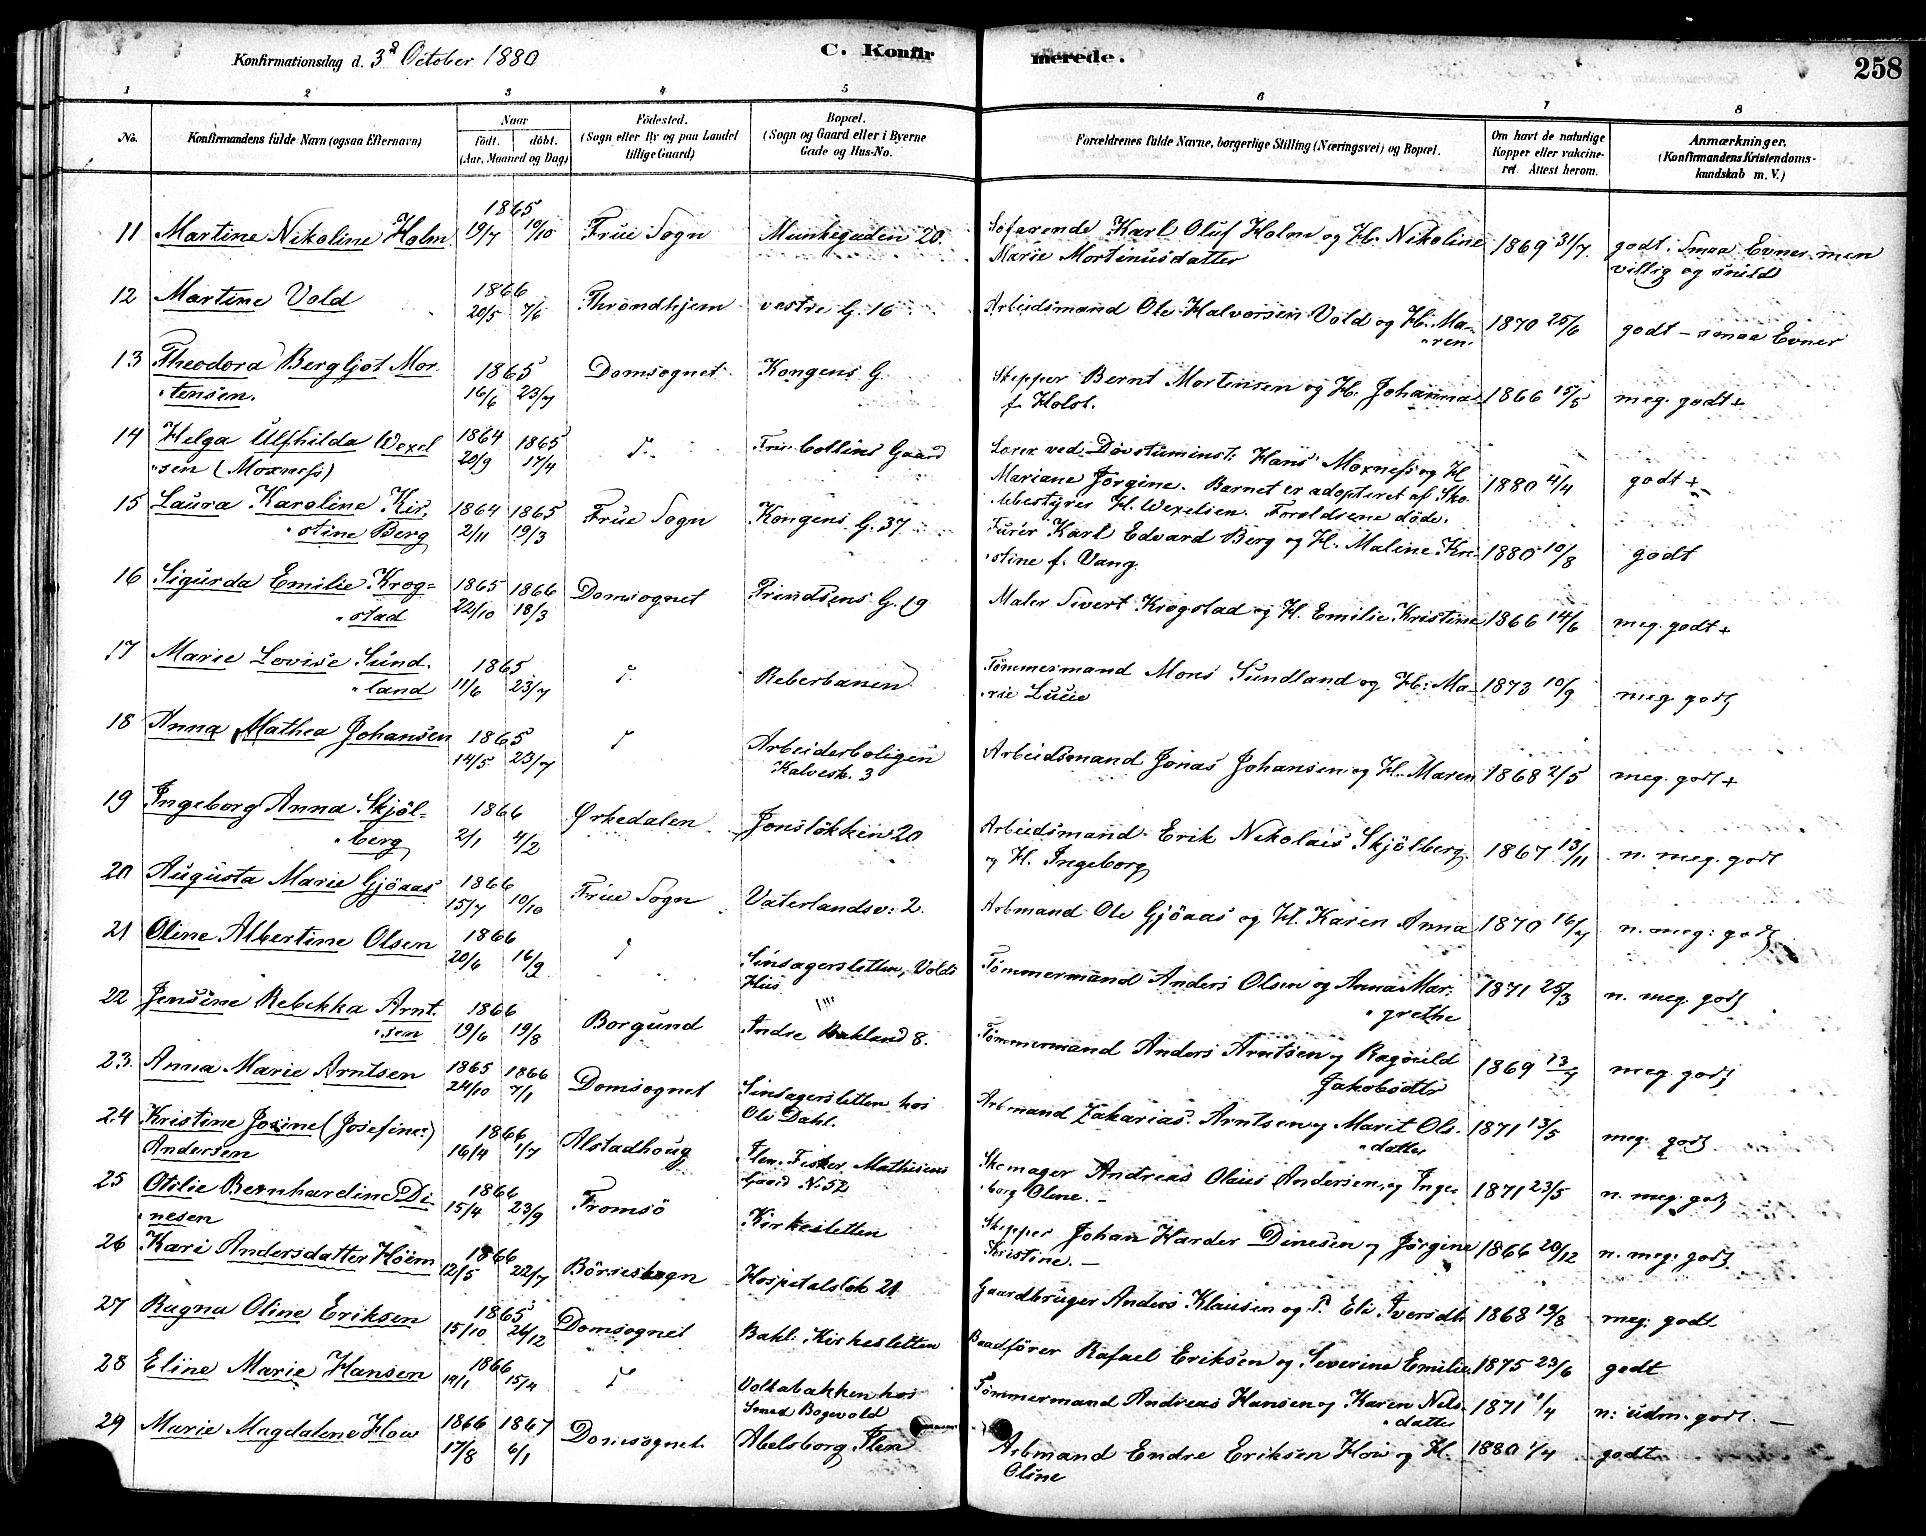 Konfirmationsdag d. 3 October 1880 C. Konfir merede. 258
1 2 3 4 5 6 7 8
No. Konfirmandens fulde Navn (ogsaa Efternavn) Naar født. døbt. (Aar, Maaned og Dag) Fødested. (Sogn eller By og paa Landet tillige Gaard) Bopæl. (Sogn og Gaard eller i Byerne Gade og Hus-No. Forældrenes fulde Navne, borgerlige Stilling (Næringsvei) og Bopæl. Om havt de naturlige Kopper eller vakcineret. Attest herom. Anmærkninger. (Konfirmandens Kristendomskundskab m. V.)
11 Martine Nikoline Holm 1865 19/7 10/10 Frue Sogn Munkegaden 20. Søfarende Karl Oluf Holm og H. Nikoline 1869 31/7. godt. Smaa Evner men
Marie Mortinusdatter villig og snild
12 Martine Vold 1866 20/5 7/6 Throndhjem vestre G. 16 Arbeidsmand Ole Halvorsen Vold og H. Ma- 1870 25/6 godt - smaa Evner
ren.
13 Theodora Bergljot Mor- 1865 16/6 23/7 Domsognet Kongens G. Skipper Bernt Mortensen og H. Johanna 1866 15/5 meg. godt +
tensen. f. Holst.
14 Helga Ulfhilda Wexel 1864 20/9 1865 17/4 Frue Collins Gaard Lærer ved Døvstuminst: Hans Moxness og H
sen (Moxness) Mariane Jörgine. Barnet er adopteret af Sko 1880 4/4 godt +
lebestyrer H. Wexelsen. Forældrene døde.
15 Laura Karoline Kir- 1864 2/11 1865 19/3 Frue Sogn Kongens G. 37. Furér Karl Edvard Berg og H. Maline Kri- 1880 10/8 godt
stine Berg stine f. Vang.
16 Sigurda Emilie Krog- 1865 22/10 1866 18/3 Domsognet Prindsens G. 19 Maler Sivert Krogstad og H. Emilie Kristine 1866 14/6 meg. godt +
stad
17 Marie Lovise Sund- 1865 11/6 23/7 Reberbanen Tømmermand Mons Sundland og H: Ma- 1873 10/9 meg godt
land rie Lucie
18 Anna Mathea Johansen 1865 14/5 23/7 Arbeiderboligen Arbeidsmand Jonas Johansen og H. Maren 1868 2/5 meg. godt +
Kalvesk. 3
19 Ingeborg Anna Skjöl- 1866 2/1 4/2 Ørkedalen Jonsløkken 20 Arbeidsmand Erik Nikolais Skjölberg 1867 13/11 n. meg. godt
berg og H. Ingeborg
20 Augusta Marie Gjöaas 1866 15/7 10/10 Frue Sogn Vaterlandsv: 2. Arbmand Ole Gjöaas og H. Karen Anna 1870 16/7 n. meg: godt
21 Oline Albertine Olsen 1866 20/6 16/9 Sinsagersletten, Volds Tømmermand Anders Olsen og Anna Mar- 1871 25/3 n. meg. godt
Hus grethe
22 Jensine Rebekka Arnt- 1866 19/6 19/8 Borgund Andre Bakland 8. Tømmermand Anders Arntsen og Ragnild 1869 meg. godt
sen Jakobsdtter
23. Anna Marie Arntsen 1865 24/10 1866 7/1 Domsognet Sinsagersletten hos Arbmand Zakarias Arntsen og Marit Ols- 1871 13/5 meg. godt
Ole Dahl. datter
24 Kristine Josine (Josefine:) 1866 16/4 1/7 Alstadhoug Ilen. Fisker Mathisens Skomager Andreas Olaus Andersen, og Inge- 1871 23/5 n. meg. godt
Andersen Gaard N. 52 borg Oline.
25 Otilie Bernhardine Di- 1866 15/4 23/9 Tromsö Kirkesletten Skipper Johan Harder Dinesen og Jörgine 1866 20/12 n. meg: godt
nesen Kristine.
26 Kari Andersdatter Höem 1866 12/5 22/7 Börsesogn Hospitalsløk 21 Gaardbruger Anders Klausen og P. Eli Iversdtr 1868 19/8 meg: godt
27 Ragna Oline Eriksen 1865 15/10 26/12 Domsognet Bakl. Kirkesletten Baadfører Rafael Eriksen og Severine Emilie 1875 23/6 godt
28 Eline Marie Hansen 1866 19/1 15/4 Volkabakken hos Tømmermand Andreas Hansen og Karen Nils- 1871 1/4 n: udm. godt.
Smed Bogevold datter
29 Marie Magdalene How 1866 17/8 1867 6/1 Domsognet. Abelsborg Ilen Arbmand Endre Eriksen How og H. 1880 1/4 godt
Oline